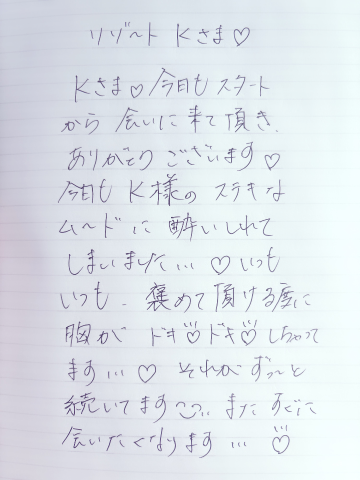 リゾート Kさま♡
Kさま♡今日もスタート
から 会いに来て頂き、
ありがとう ございます♡
今日も K様の ステキな
ムードに 酔いしれて
しまいました…♡いつも
いつも、褒めて頂ける度に
胸が ドキ♡ドキ♡しちゃって
ます…♡ それがずっと
続いてます また すぐに
会いたくなります…♡